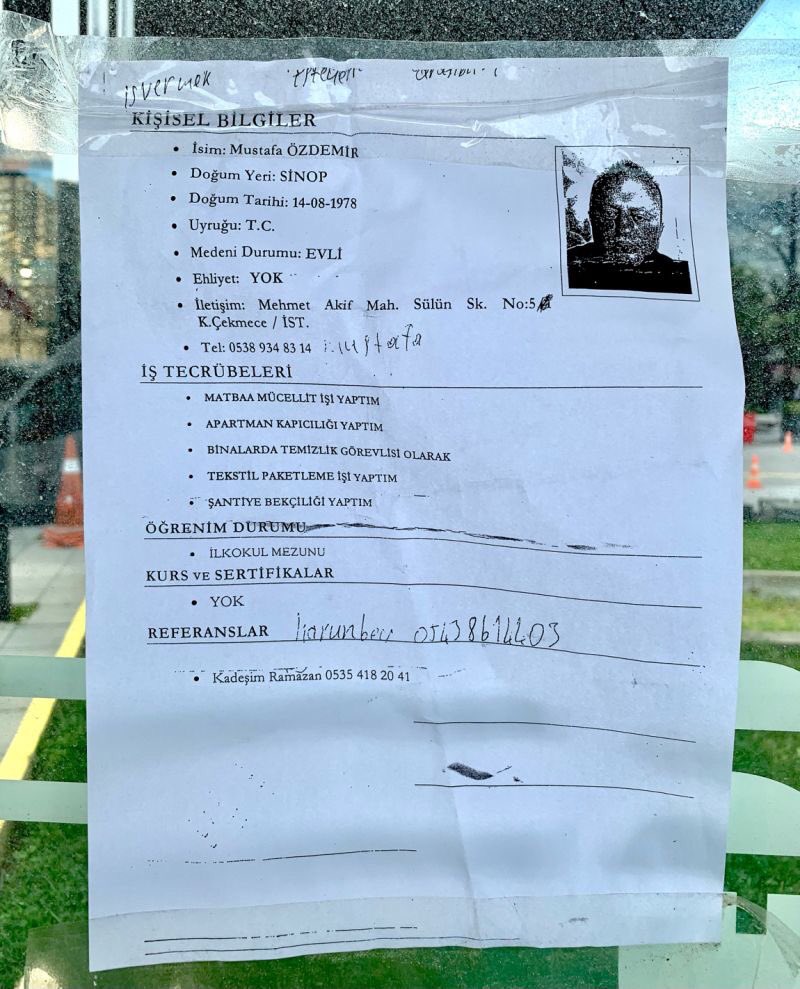 işvermek isteyen arasın
KİŞİSEL BİLGİLER
• İsim: Mustafa ÖZDEMİR
• Doğum Yeri: SİNOP
• Doğum Tarihi: 14-08-1978
• Uyruğu: T.C.
• Medeni Durumu: EVLİ
• Ehliyet: YOK
• İletişim: Mehmet Akif Mah. Sülün Sk. No:5
K.Çekmece / İST.
• Tel: 0538 934 83 14 mustafa
İŞ TECRÜBELERİ
• MATBAA MÜCELLİT İŞİ YAPTIM
• APARTMAN KAPICILIĞI YAPTIM
• BİNALARDA TEMİZLİK GÖREVLİSİ OLARAK
• TEKSTİL PAKETLEME İŞİ YAPTIM
• ŞANTİYE BEKÇİLİĞİ YAPTIM
ÖĞRENİM DURUMU
• İLKOKUL MEZUNU
KURS VE SERTİFİKALAR
• YOK
REFERANSLAR Harunbey 05438614403
• Kadeşim Ramazan 0535 418 20 41